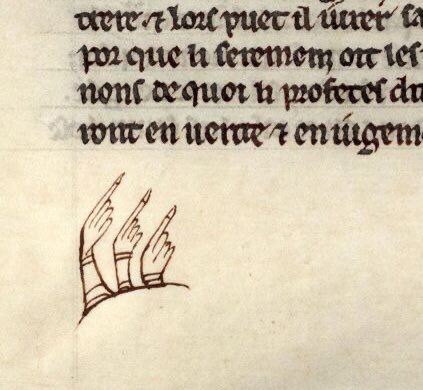 tiere ⁊ lors puet il iurer sa
por que li seremenz oit les
nons de quoi li profetes dit
iront en uerite ⁊ en iugeme